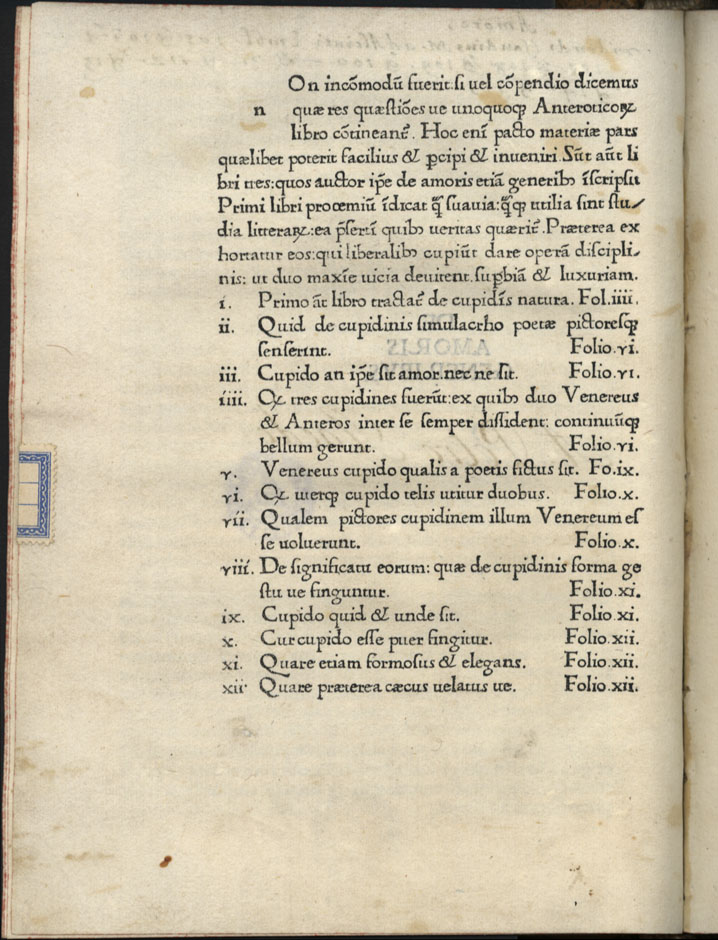 On incōmodū fuerit.si uel cōpendio dicemus
n quæ res quæstiões ue unoquoqꝫ Anteroticoꝝ
libro cōtineant̄. Hoc eni᷑ pacto materiæ pars
quælibet poterit facilius & ꝑcipi & inueniri.Sūt aūt li
bri tres:quos auctor ip̄e de amoris etiā generibꝫ īscripsit
Primi libri prooemiū īdicat q̄ suauia:q̄qꝫ utilia sint stu⸗
dia litteraꝝ:ea p̄serti᷑ quibꝫ ueritas quærit̄.Præterea ex
hortatur eos:qui liberalibꝫ cupiūt dare operā discipli⸗
nis: ut duo maxīe uicia deuitent.suꝑbiā & luxuriam.
i. Primo āt libro tractat̄ de cupidīs natura. Fol.iiii.
ii. Quid de cupidinis simulacrho poetæ pictoresqꝫ
senserint. Folio.vi.
iii. Cupido an ip̄e sit amor.nec ne sit. Folio.vi.
iiii. Qꝫ tres cupidines fuerūt:ex quibꝫ duo Venereus
& Anteros inter se semper dissident: continuūqꝫ
bellum gerunt. Folio.vi.
v. Venereus cupido qualis a poetis fictus sit. Fo.ix.
vi. Qꝫ uterqꝫ cupido telis utitur duobus. Folio.x.
vii. Qualem pictores cupidinem illum Venereum es
se uoluerunt. Folio.x.
viii. De significatu eorum: quæ de cupidinis forma ge
stu ue finguntur. Folio.xi.
ix. Cupido quid & unde sit. Folio.xi.
x. Cur cupido esse puer fingitur. Folio.xii.
xi. Quare etiam formosus & elegans. Folio.xii.
xii. Quare præterea cæcus uelatus ue. Folio.xii.